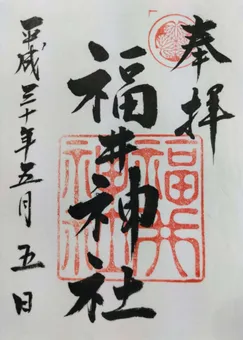 奉拝
福井神社
平成三十年五月五日
福井
神社